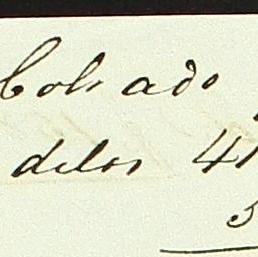 Cobrado
delos 41
3